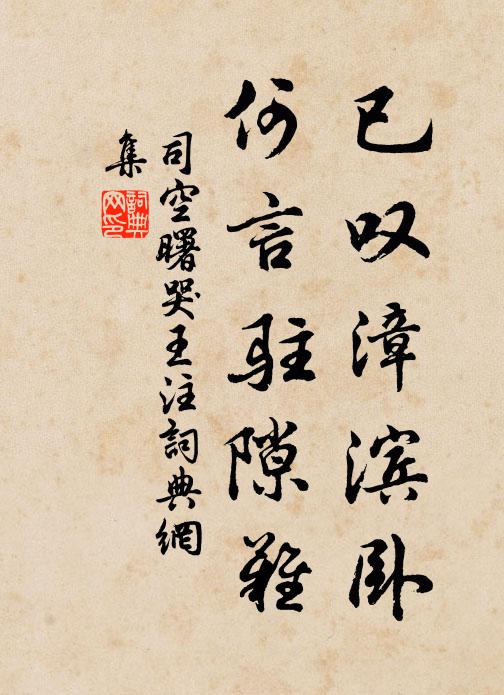 已叹漳滨卧
何言驻隙难
司空曙哭王注詞典網
集
詞典網印